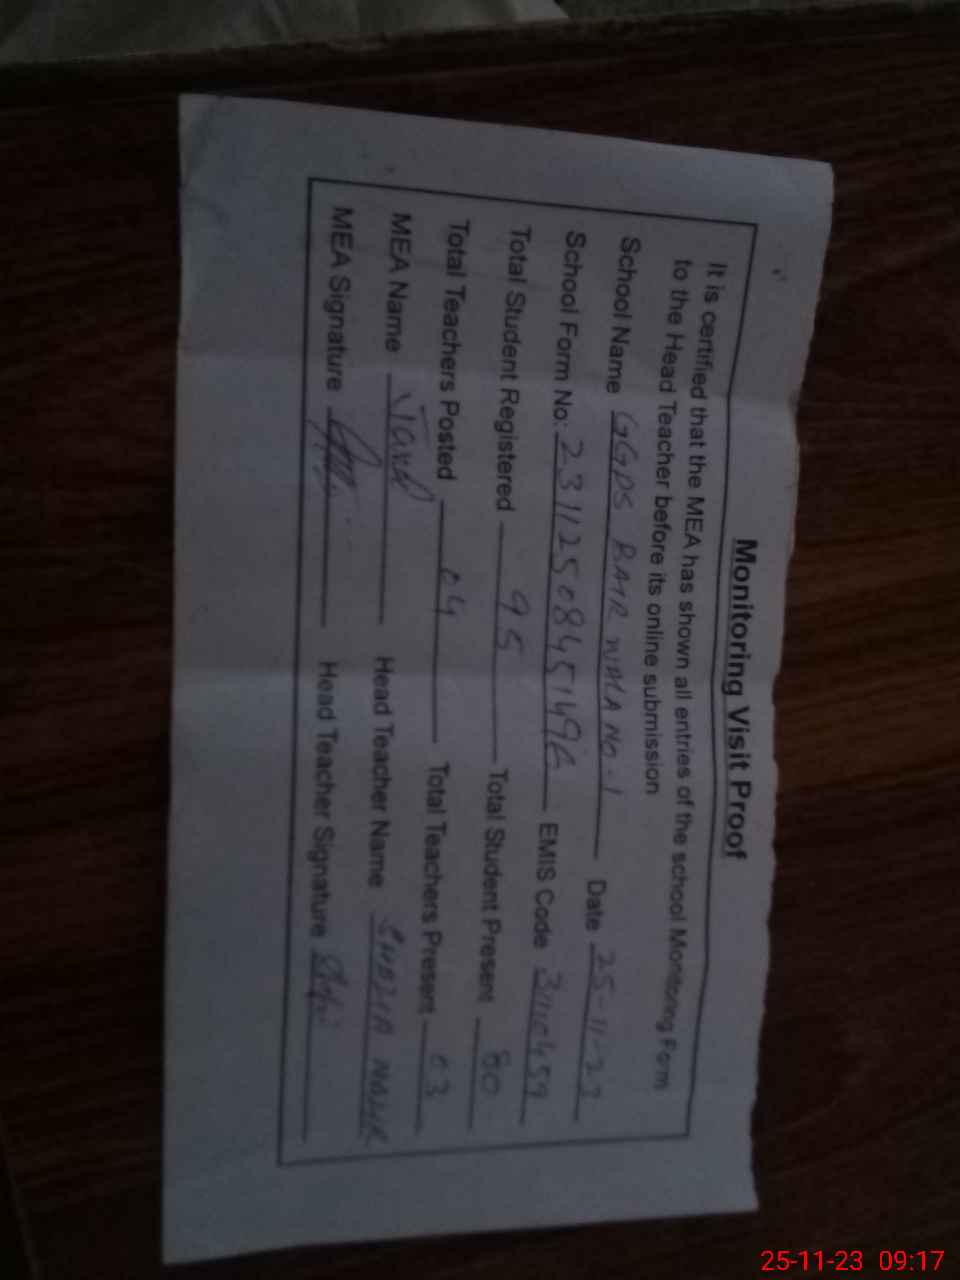 Monitoring Visit Proof
It is certified that the MEA has shown all entries of the school Monitoring Form
to the Head Teacher before its online submission
School Name GGPS WALA NO.1 Date 25-11-23
School Form No: EMIS Code
Total Student Registered 95 Total Student Present 80
Total Teachers Posted 04 Total Teachers Present 03
MEA Name Head Teacher Name
MEA Signature Head Teacher Signature
25-11-23 09:17